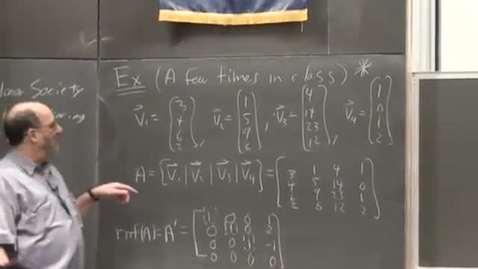 Society
Ex (A few times in class) *
V⃗₁ = [3 4 6 2], V⃗₂ = [1 5 9 6], V⃗₃ = [4 14 23 12], V⃗₄ = [1 0 1 2]
A = [V⃗₁ | V⃗₂ | V⃗₃ | V⃗₄] =
3 1 4 1
4 5 14 0
6 9 23 1
2 6 12 2
rref(A) = A' =
1 0 0 1
0 1 0 2
0 0 1 -1
0 0 0 0